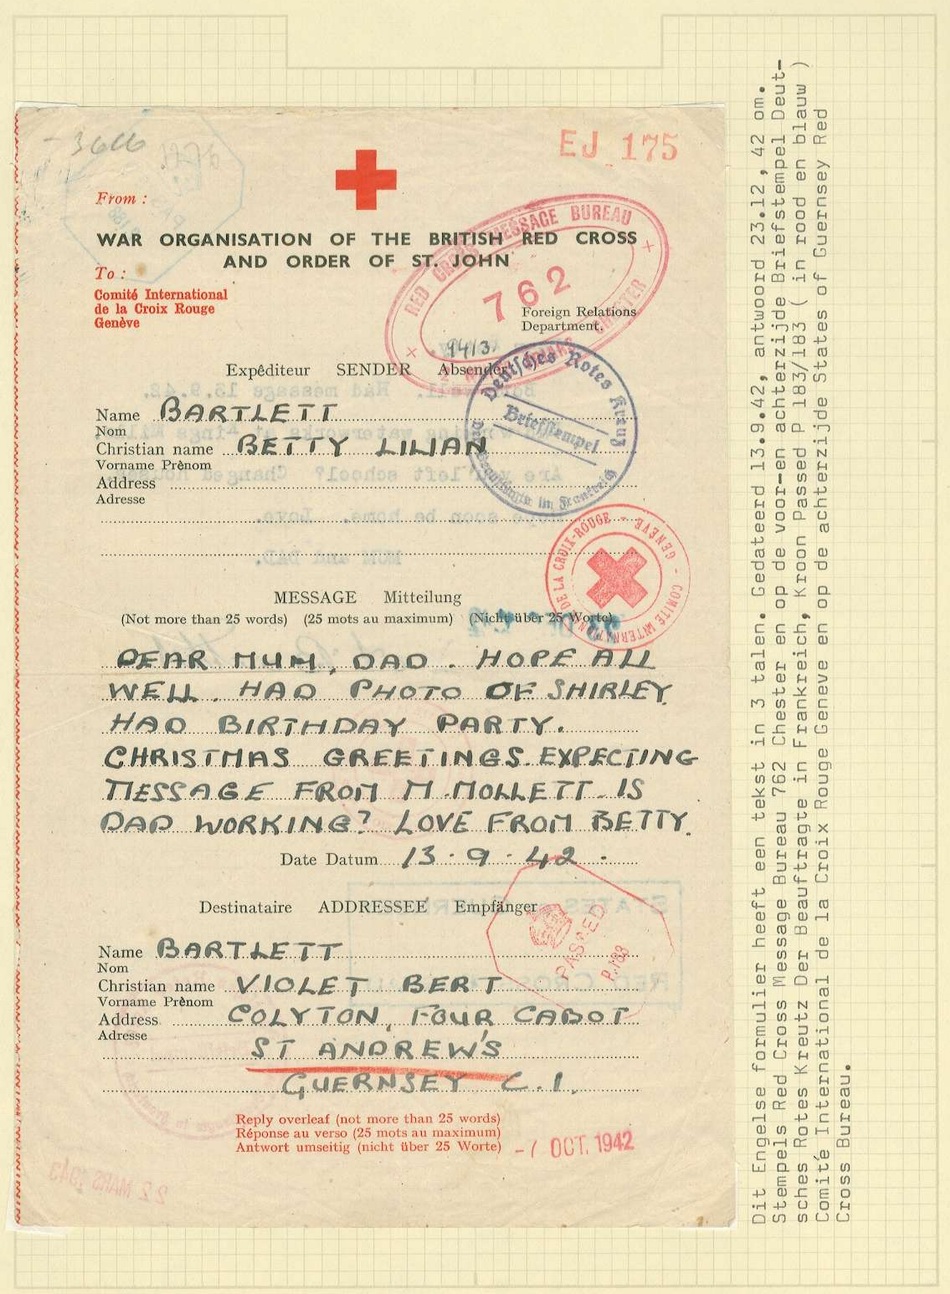 -3666
EJ 175
From :
WAR ORGANISATION OF THE BRITISH RED CROSS
AND ORDER OF ST. JOHN
To :
Comité International
de la Croix Rouge
Genève
RED CROSS MESSAGE BUREAU
762
CHESTER
Foreign Relations
Department.
Expéditeur SENDER Absender
Deutsches Rotes Kreuz
Briefstempel
Beauftragte in Frankreich
Name BARTLETT
Nom
Christian name BETTY LILIAN
Vorname Prènom
Address
Adresse
COMITÉ INTERNAT DE LA CROIX-ROUGE - GENÈVE -
MESSAGE Mitteilung
(Not more than 25 words) (25 mots au maximum) (Nicht über 25 Worte)
DEAR MUM, DAD. HOPE ALL
WELL. HAD PHOTO OF SHIRLEY
HAD BIRTHDAY PARTY.
CHRISTMAS GREETINGS. EXPECTING
MESSAGE FROM M. MOLLETT. IS
DAD WORKING? LOVE FROM BETTY.
Date Datum 13.9.42.
Destinataire ADDRESSEE Empfänger
PASSED
Name BARTLETT
Nom
Christian name VIOLET BERT
Vorname Prènom
Address COLYTON, FOUR CABOT
Adresse
ST ANDREW'S
GUERNSEY C.I.
Reply overleaf (not more than 25 words)
Réponse au verso (25 mots au maximum)
Antwort umseitig (nicht über 25 Worte)
-7 OCT. 1942
22 MARS 1943
Dit Engelse formulier heeft een tekst in 3 talen. Gedateerd 13.9.42, antwoord 23.12,42 om.
Stempels Red Cross Message Bureau 762 Chester en op de voor-en achterzijde Briefstempel Deut-
sches Rotes Kreutz Der Beauftragte in Frankreich, Kroon Passed P 183/183 ( in rood en blauw )
Comité International de la Croix Rouge Geneve en op de achterzijde States of Guernsey Red
Cross Bureau.